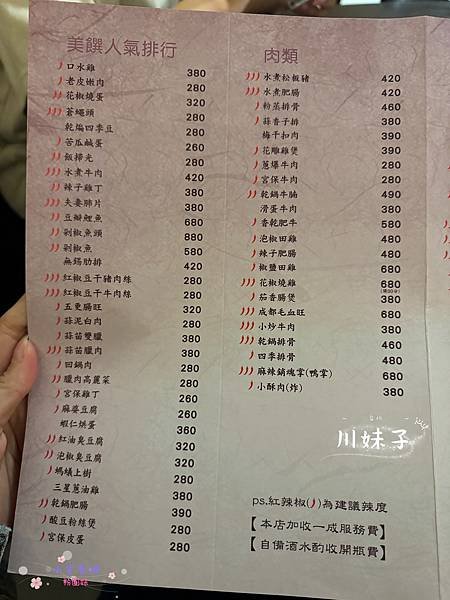 美饌人氣排行
口水雞 380
老皮嫩肉 280
花椒燒蛋 320
蒼蠅頭 280
乾煸四季豆 280
苦瓜鹹蛋 260
飯掃光 280
水煮牛肉 420
辣子雞丁 380
夫妻肺片 380
豆瓣鯉魚 680
剁椒魚頭 880
剁椒魚 580
無錫肋排 420
紅椒豆干豬肉絲 280
紅椒豆干牛肉絲 280
五更腸旺 320
蒜泥白肉 280
蒜苗雙臘 380
蒜苗臘肉 380
回鍋肉 280
臘肉高麗菜 280
宮保雞丁 260
麻婆豆腐 260
蝦仁烘蛋 360
紅油臭豆腐 320
泡椒臭豆腐 320
螞蟻上樹 280
三星蔥油雞 380
乾鍋肥腸 390
酸豆粉絲煲 280
宮保皮蛋 280
肉類
水煮松板豬 420
水煮肥腸 420
粉蒸排骨 460
蒜香子排 380
梅干扣肉 390
花雕雞煲 390
蔥爆牛肉 280
宮保牛肉 280
乾鍋牛腩 490
滑蛋牛肉 380
香乾肥牛 580
泡椒田雞 480
辣子肥腸 480
椒鹽田雞 480
花椒燒雞 680
茄香腸煲 380
成都毛血旺 680
小炒牛肉 380
乾鍋排骨 460
四季排骨 480
麻辣銷魂掌(鴨掌) 680
小酥肉(炸) 380
川妹子
ps.紅辣椒( )為建議辣度
【本店加收一成服務費】
【自備酒水酌收開瓶費】
粉圓妹